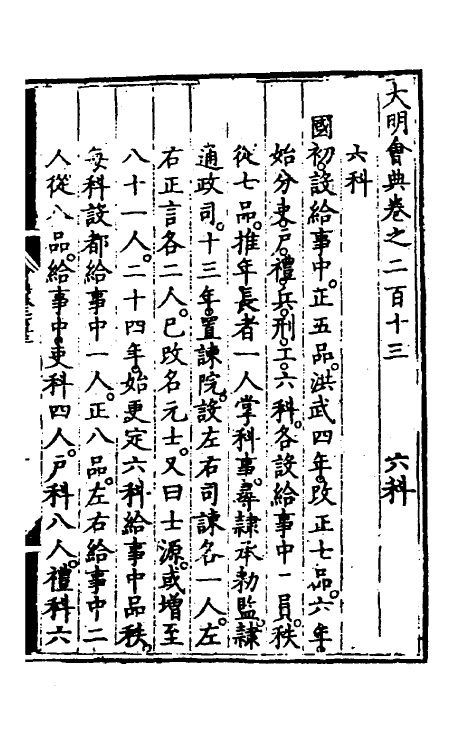 大明會典卷之二百十三 六科
六科
國初設給事中。正五品。洪武四年。改正七品。六年。
始分吏戶禮兵刑工六科。各設給事中一員。秩
從七品。推年長者一人掌科事。尋隸承勅監。隸
通政司。十三年。置諫院。設左右司諫各一人。左
右正言各二人。已改名元士。又曰士源。或增至
八十一人。二十四年。始更定六科給事中品秩。
每科設都給事中一人。正八品。左右給事中二
人從八品。給事中。吏科四人。戶科八人。禮科六